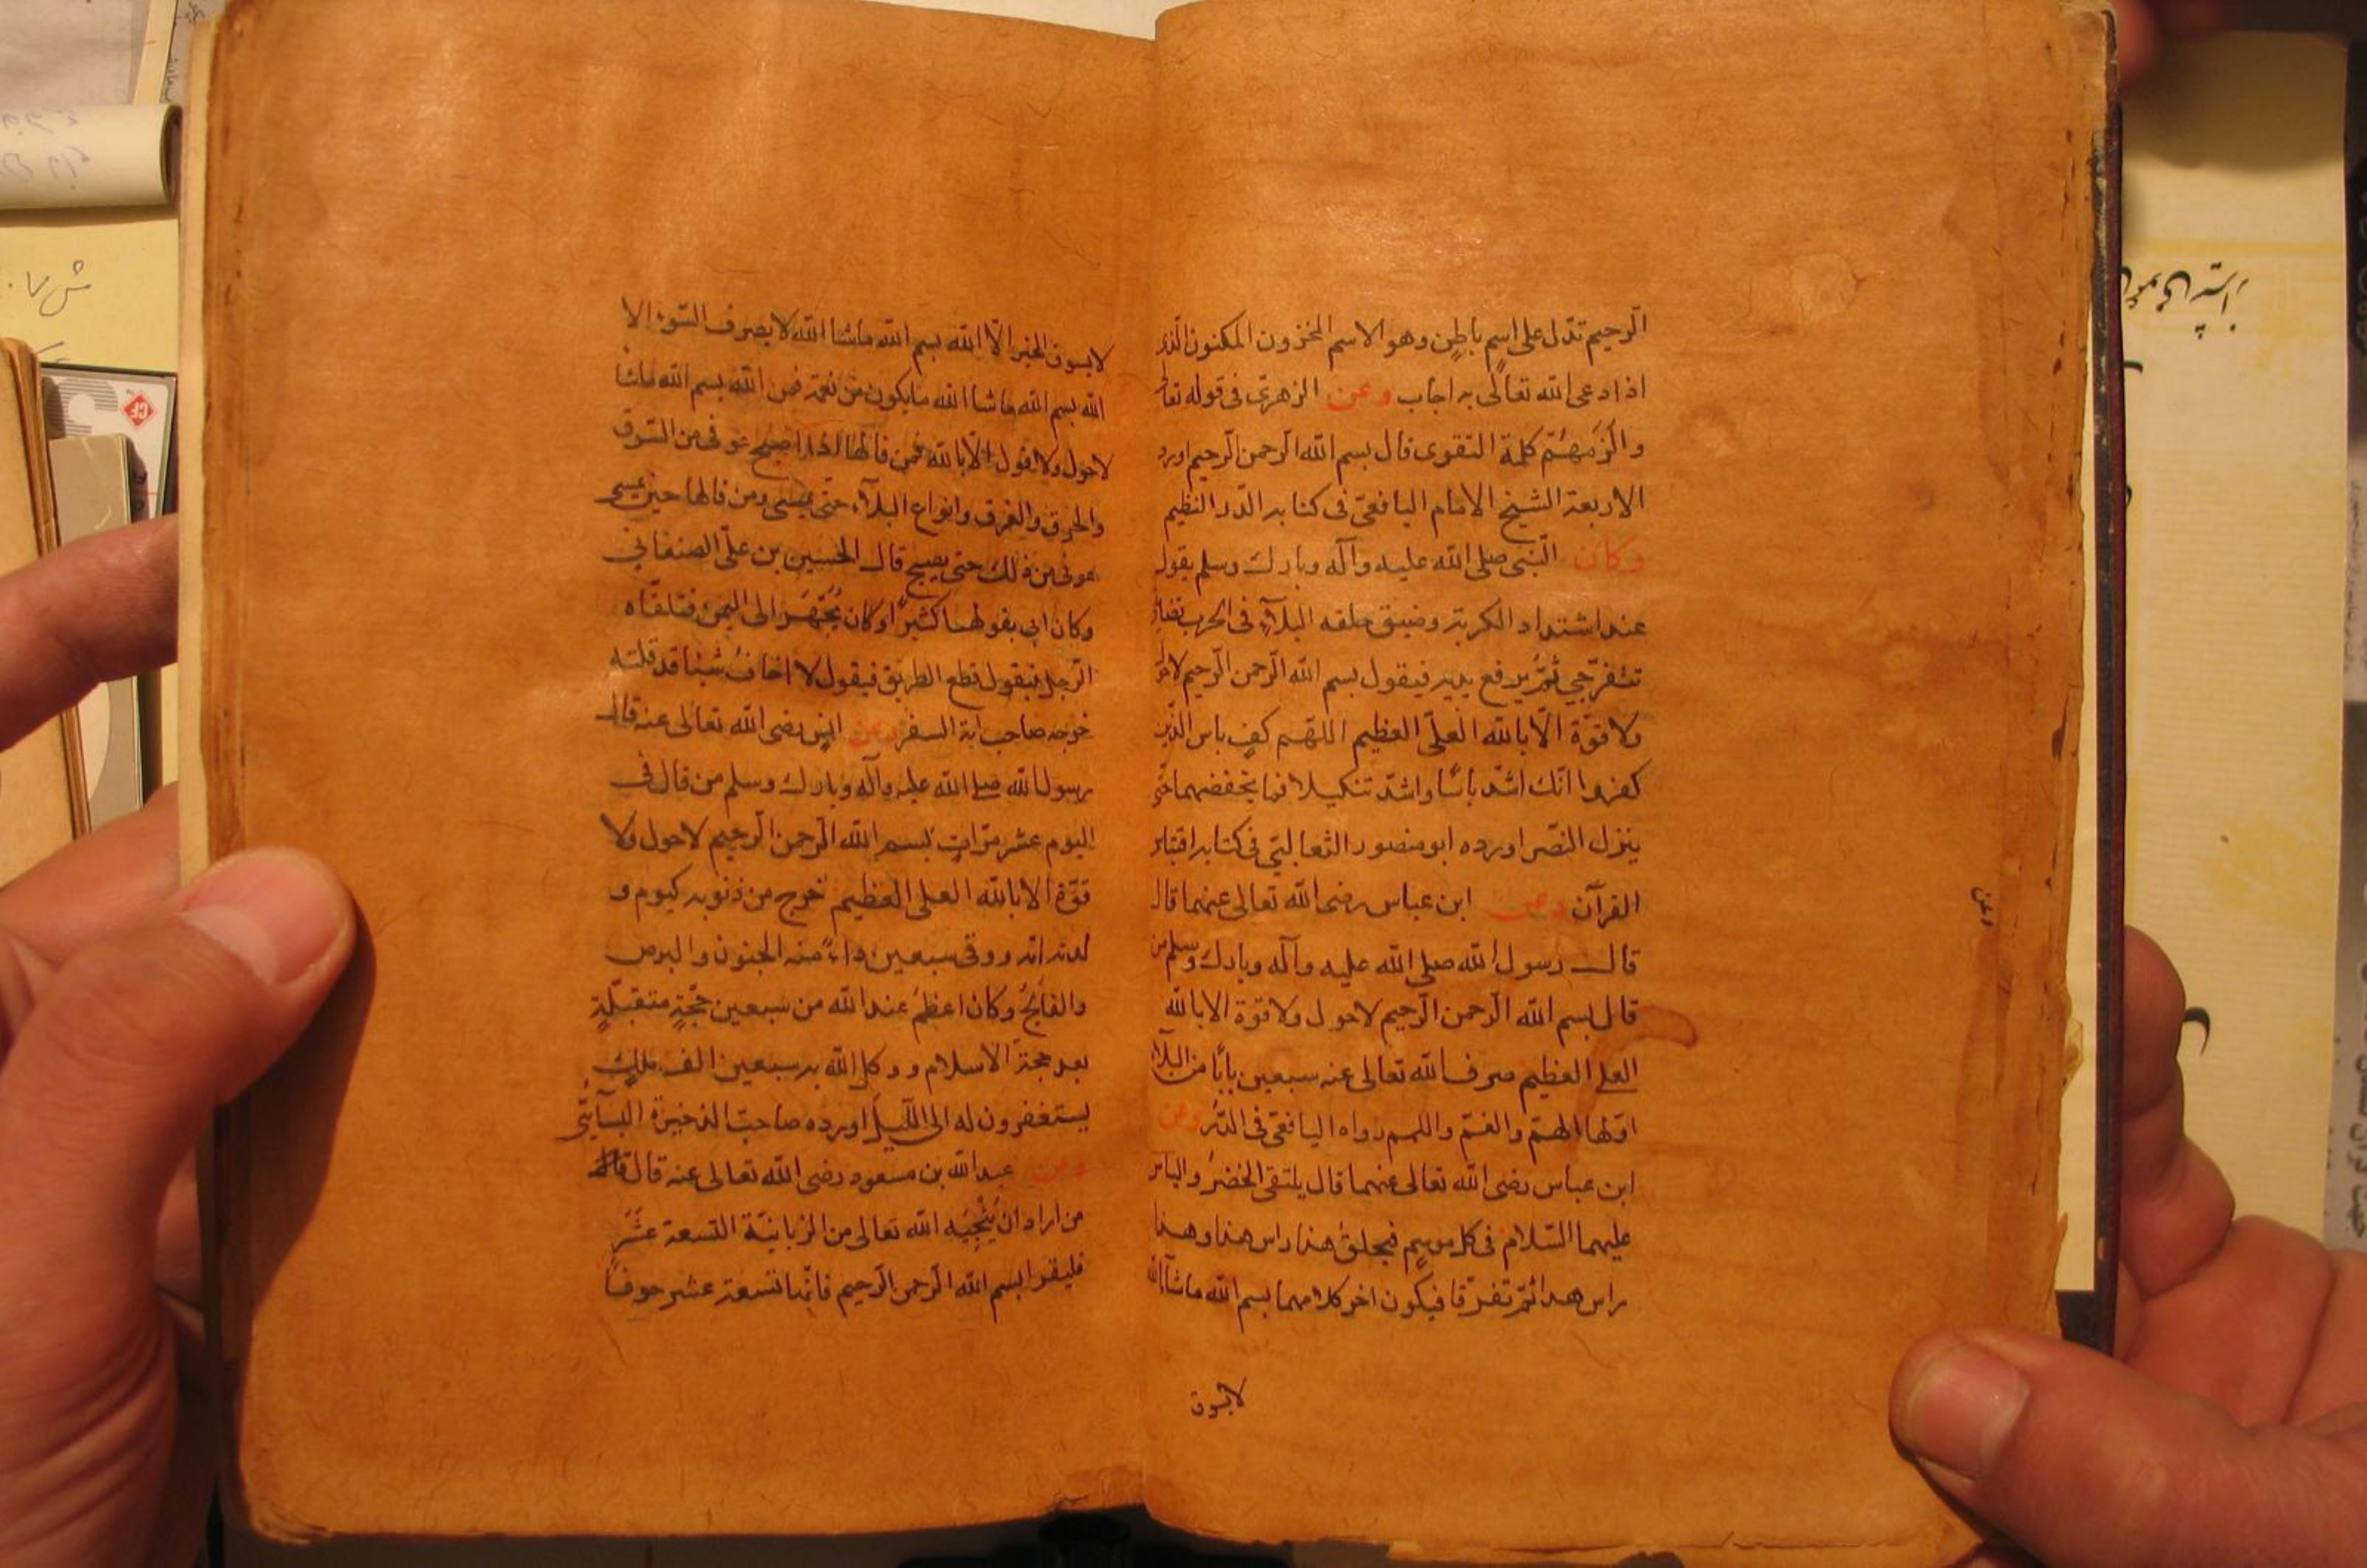 الرحيم تدل على اسم باطن وهو الاسم المخزون المكنون الذى
اذا دعى الله تعالى به اجاب وعن الزهرى فى قوله تعا
والزمهم كلمة التقوى قال بسم الله الرحمن الرحيم اورد
الاربعة الشيخ الامام اليافعى فى كتابه الدر النظيم
وكان النبى صلى الله عليه وآله وبارك وسلم يقول
عند اشتداد الكربة وضيق حلقه البلاء فى الحرب
ثم يرفع يديه فيقول بسم الله الرحمن الرحيم لاحول
ولا قوة الا بالله العلى العظيم اللهم كف باس الذين
كفروا انك اشد باسا واشد تنكيلا فما يخفضهما حتى
ينزل النصر اورده ابو منصور الثعالبى فى كتابه
القرآن وعن ابن عباس رضى الله تعالى عنهما قال
قال رسول الله صلى الله عليه وآله وبارك وسلم من
قال بسم الله الرحمن الرحيم لاحول ولا قوة الا بالله
العلى العظيم صرف الله تعالى عنه سبعين بابا من البلاء
اولها الهم والغم واللمم رواه اليافعى فى الدر وعن
ابن عباس رضى الله تعالى عنهما قال يلتقى الخضر والياس
عليهما السلام فى كل موسم فيحلق هذا راس هذا وهذا
راس هذا ثم تفرقا فيكون اخر كلامهما بسم الله ماشاالله
لايسوق
وعن
لايسوق الخير الا الله بسم الله ماشا الله لايصرف السوء الا
الله بسم الله ماشا الله مايكون من نعمة فمن الله بسم الله ماشا
لاحول ولا قول الا بالله فمن قالها اذا اصبح عوفى من السرق
والحرق والغرق وانواع البلاء حتى يمسى ومن قالها حين يمسى
عوفى من ذلك حتى يصبح قال الحسين بن على الصنعانى
وكان ابى يقولها كثيرا وكان يجهز الى اليمن فتلقاه
الرجل فيقول قطع الطريق فيقول لا اخاف شيئا قد قلته
خرجه صاحب السفر وعن انس رضى الله تعالى عنه قال
رسول الله صلى الله عليه وآله وبارك وسلم من قال فى
اليوم عشر مرات بسم الله الرحمن الرحيم لاحول ولا
قوة الا بالله العلى العظيم خرج من ذنوبه كيوم و
لدته امه ووقى سبعين داء منه الجنون والبرص
والفالج وكان اعظم عند الله من سبعين حجة متقبلة
بعد حجة الاسلام ووكل الله به سبعين الف ملك
يستغفرون له الى الليل اورده صاحب الذخيرة
وعن عبد الله بن مسعود رضى الله تعالى عنه قال
من اراد ان ينجيه الله تعالى من الزبانية التسعة عشر
فليقرا بسم الله الرحمن الرحيم فانها تسعة عشر حرفا